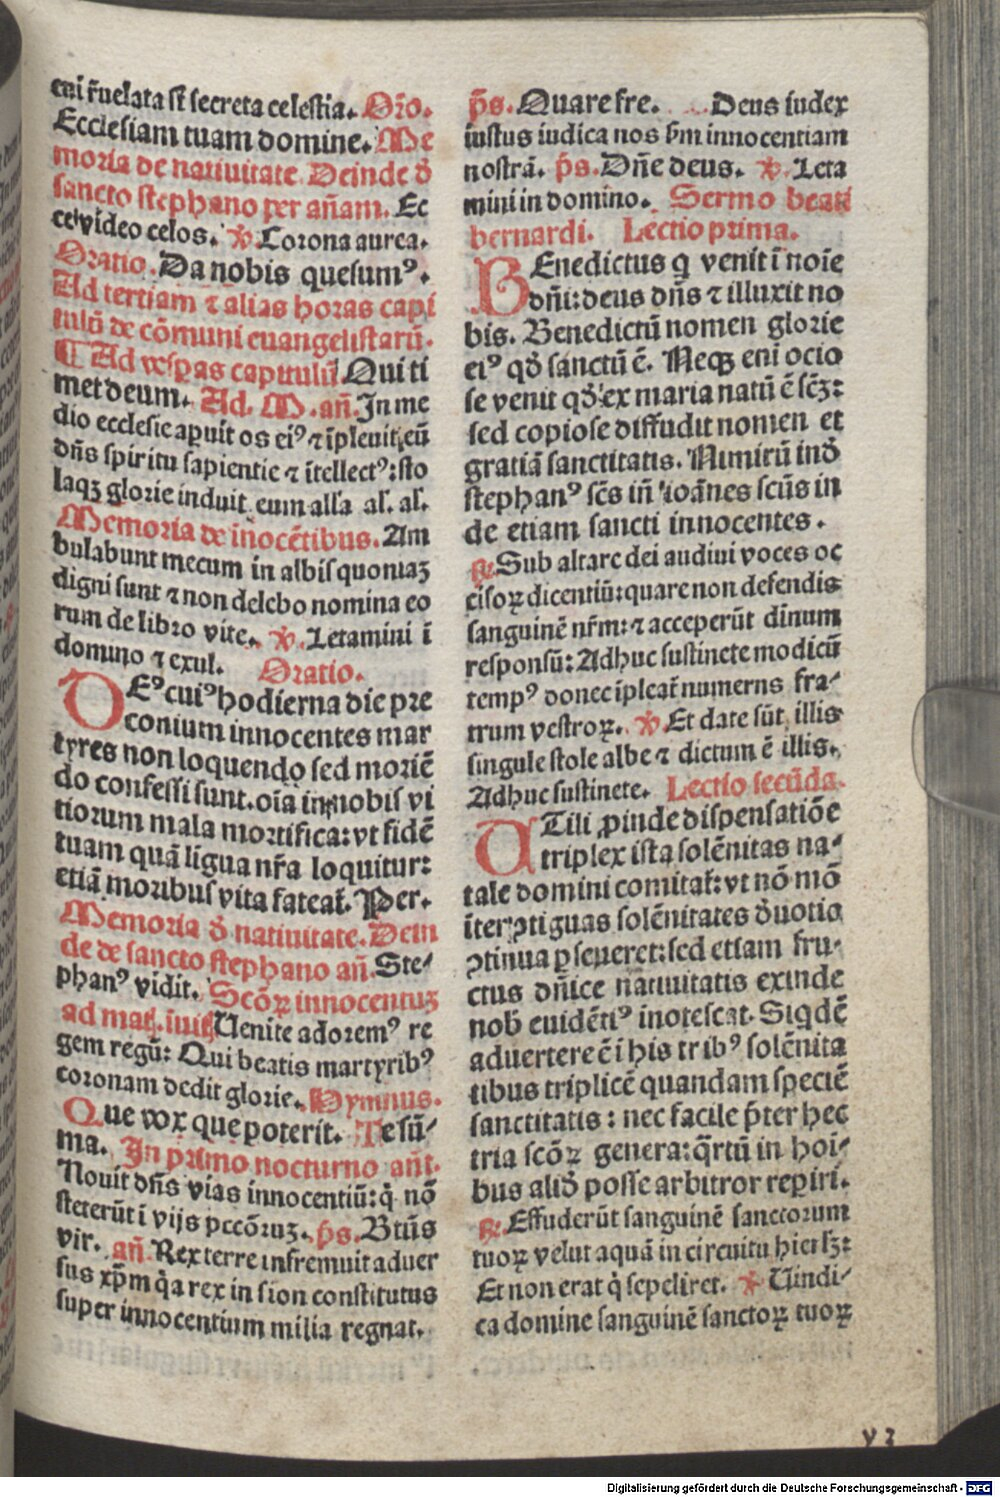 eni r̄uelata st̄ secreta celestia. Or̄o.
Ecclesiam tuam domine. Me
moria de natiuitate. Deinde d̄
sancto stephano per an̄am. Ec
ce video celos. ℣. Corona aurea.
Oratio. Da nobis quesumꝰ.
Ad tertiam ⁊ alias horas capi
tulū de cōmuni euangelistarū.
¶ Ad vesperas capitulū. Qui ti
met deum. Ad. M. an̄. In me
dio ecclesie aperuit os eiꝰ ⁊ īpleuit eū
dn̄s spiritu sapientie ⁊ ītellectꝰ: sto
laqꝫ glorie induit eum alla al. al.
Memoria de inocētibus. Am
bulabunt mecum in albis quoniaꝫ
digni sunt ⁊ non delebo nomina eo
rum de libro vite. ℣. Letamini ī
domino ⁊ exul. Oratio.
DEꝰ cuiꝰ hodierna die pre
conium innocentes mar
tyres non loquendo sed moriē
do confessi sunt. oīa in nobis vi
tiorum mala mortifica: vt fidē
tuam quā līgua nr̄a loquitur:
etiā moribus vita fateat̄. Per.
Memoria d̄ natiuitate. Dein
de de sancto stephano an̄. Ste⸗
phanꝰ vidit. Scōꝝ innocentuꝫ
ad mat. īuit. Uenite adoremꝰ re
gem regū: Qui beatis martyribꝰ
coronam dedit glorie. Hymnus.
Que vox que poterit. Te sū⸗
ma. In primo nocturno an̄.
Nouit dn̄s vias innocentiū: q̇ nō
steterūt ī vijs pccōruꝫ. p̄s. Btūs
vir. an̄. Rex terre infremuit aduer
sus xp̄m q̇a rex in sion constitutus
super innocentium milia regnat.
p̄s. Quare fre. Deus iudex
iustus iudica nos s̄m innocentiam
nostrā. p̄s. Dn̄e deus. ℣. Leta
mini in domino. Sermo beati
bernardi. Lectio prima.
BEnedictus q̇ venit ī noīe
dn̄i: deus dn̄s ⁊ illuxit no
bis. Benedictū nomen glorie
eiꝰ qd̄ sanctū ē. Neqꝫ eni ocio
se venit qd̄ ex maria natū ē scꝫ:
sed copiose diffudit nomen et
gratiā sanctitatis. Nimirū ind̄
stephanꝰ scs̄ in̄ ioānes scūs in
de etiam sancti innocentes.
℟. Sub altare dei audiui voces oc
cisoꝝ dicentiū: quare non defendis
sanguinē nr̄m: ⁊ acceperūt diīnum
responsū: Adhuc sustinete modicū
tempꝰ donec īpleat̄ numerus fra⸗
trum vestroꝝ. ℣. Et date sūt illis
singule stole albe ⁊ dictum ē illis.
Adhuc sustinete. Lectio secūda.
UTili ꝓinde dispensatiōe
triplex ista solēnitas na⸗
tale domini comitat̄: vt nō mō
īter ꝯtiguas solēnitates d̄uotio
ꝯtinua ꝑseueret: sed etiam fru⸗
ctus dn̄ice natiuitatis exinde
nob̄ euidētiꝰ inotescat. Siqdē
aduertere ē ī his tribꝰ solēnita
tibus triplicē quandam speciē
sanctitatis: nec facile p̄ter hec
tria scōꝝ genera: q̄rtū in hoī⸗
bus alid̄ posse arbitror reperiri.
℟. Effuderūt sanguinē sanctorum
tuoꝝ velut aquā in circuitu hierłꝫ:
Et non erat q̇ sepeliret. ℣. Uindi⸗
ca domine sanguinē sanctoꝝ tuoꝝ
y 3
Digitalisierung gefördert durch die Deutsche Forschungsgemeinschaft - DFG